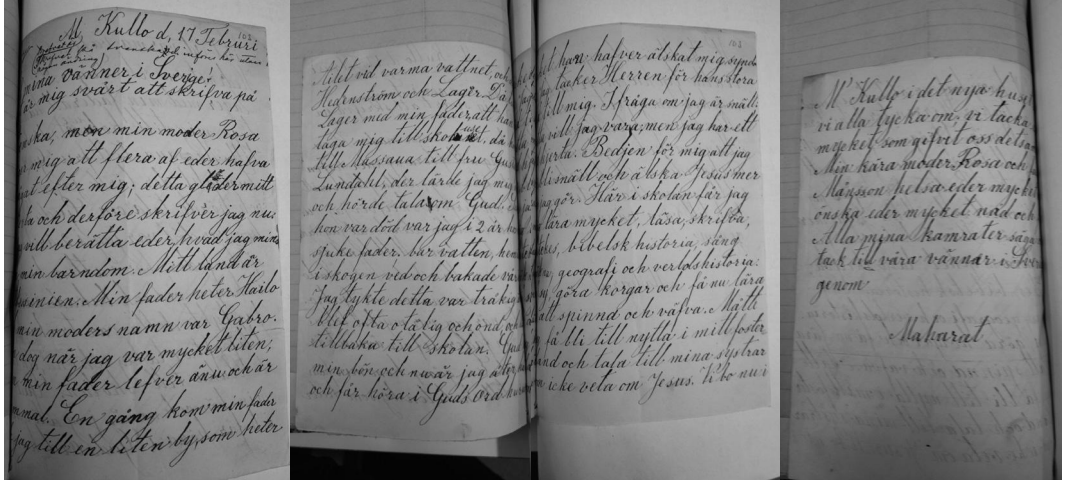 M. Kullo d, 17 Februri
mina vänner i Sverge!
är mig svårt att skrifva på
men min moder Rosa
mig att flera af eder hafva
efter mig; detta gläder mitt
och derföre skrifver jag nu
vill berätta eder, hvad jag mins
min barndom. Mitt land är
Min fader heter Hailo
min moders namn var Gabro.
dog när jag var mycket liten,
min fader lefver änu och är
En gång kom min fader
jag till en liten by, som heter
Ailet vid varma vattnet, och
Hedenström och Lager Då
Lager med min fader att han
taga mig till skolhuset, då
till Massaua till fru
Lundahl, der lärde jag mig
och hörde tala om Gud.
hon var död var jag i 2 år hos
sjuke fader. bar vatten,
i skogen ved och bakade
Jag tykte detta var tråkigt
blef ofta otålig och ond, och
tillbaka till skolan. Gud
min bön och nu är jag åter
och får höra i Guds ord
han hafver älskat mig
tacker Herren för hans stora
till mig. I fråga om jag är snäll.
vill jag vara, men jag har ett
hjerta. Bedjen för mig att jag
bli snäll och älska Jesus mer
jag gör. Här i skolan får jag
lära mycket, läsa, skrefva,
bibelsk historia, sång
geografi och verldshistoria.
göra korgar och få nu lära
att spinnd och väfva. Måtte
få bli till nytta i mitt foster
land och tala till mina systrar
icke veta om Jesus. Vi bo nu i
M' Kullo i det nya huset
vi alla tycka om. vi tacka
mycket som gifvit oss det
Min kära moder Rosa och
Månsson helsa eder mycket
önska eder mycket nåd och
Alla mina kamrater säga
tack till våra vänner i
genom
Maharat